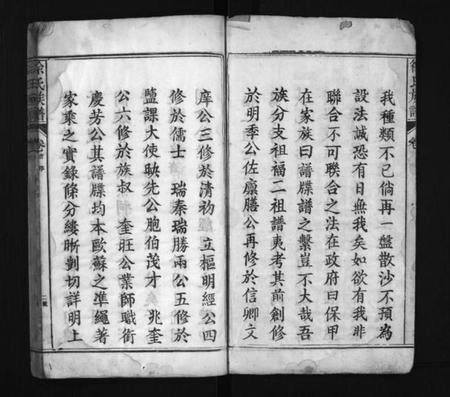 我種類不已倘再一盤散沙不預為
設法誠恐有日無我矣如欲有我非
聯合不可聯合之法在政府曰保甲
在家族曰譜牒譜之繫豈不大哉吾
族分支祖福二祖譜夷考其前創修
於明季公佐廪膳公再修於信卿文
庠公三修於清初 立樞明經公四
修於儒士 瑞泰瑞勝兩公五修於
監課大使映先公胞伯茂才 兆奎
公六修於族叔 奎旺公業師職銜
慶芳公其譜牒均本歐蘇之準繩著
家乘之實錄條分縷晰剴切詳明上
徐氏族譜